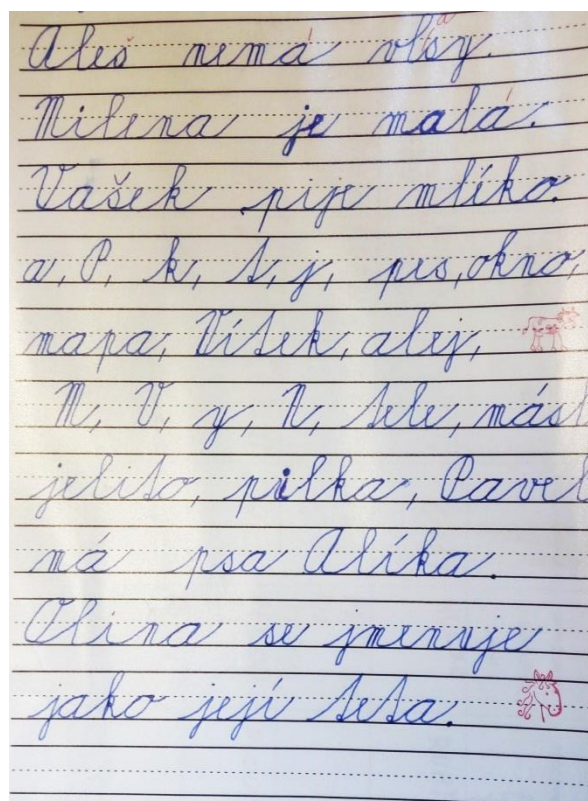 Aleš nemá vlsy.
Milena je malá.
Vašek pije mlíko.
a, P, k, t, j, pes, okno,
mapa, Vítek, alej,
M, V, y, N, tele, másl
jelito, pilka, Pavel
má psa Alíka.
Olina se jmenuje
jako její teta.